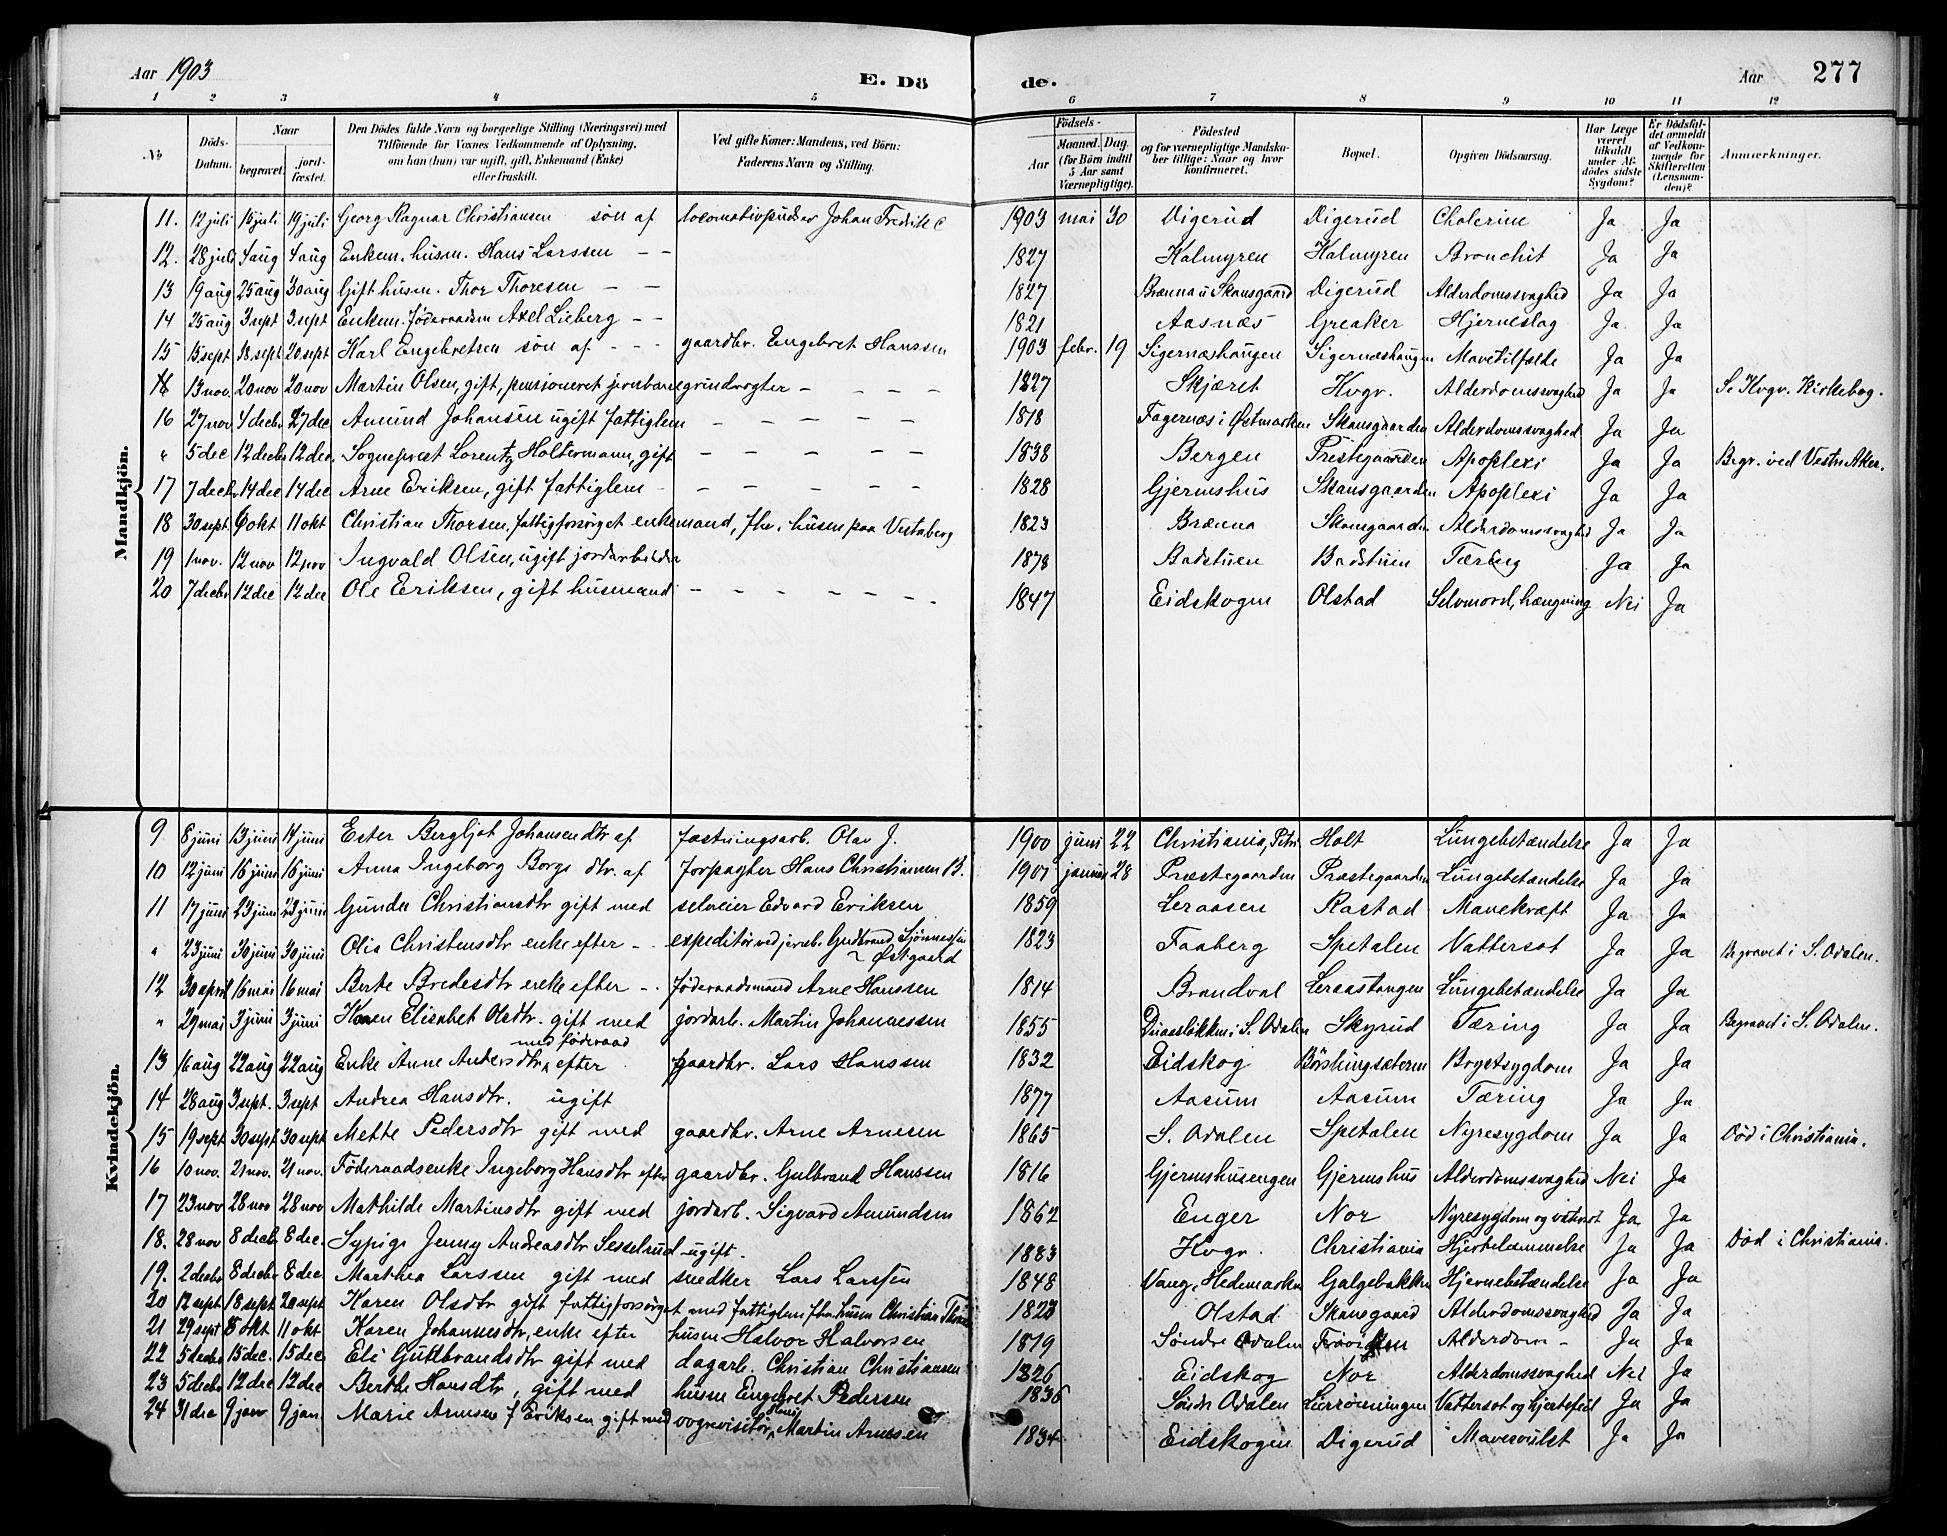 Aar 1903 E. Dö de. Aar 277
1 2 3 4 5 6 7 8 9 10 11 12
№ Döds-Datum. Naar begravet. jordfæstet. Den Dödes fulde Navn og borgerlige Stilling (Næringsvei) med Tilföiende for Voxnes Vedkommende af Oplysning, om han (hun) var ugift, gift, Enkemand (Enke) eller fraskilt. Ved gifte Koner: Mandens, ved Börn: Faderens Navn og Stilling. Födsels- Aar Maaned. Dag. (for Börn indtil 5 Aar samt Værnepligtige). Födested og for værnepligtige Mandskaber tillige: Naar og hvor konfirmeret. Bopæl. Opgiven Dödsaarsag. Har Læge været tilkaldt under Afdödes sidste Sygdom? Er Dödsfaldet anmeldt af Vedkommende for Skifteretten (Lensmanden)? Anmærkninger.
Mandkjön.
11. 12 juli 15 juli 19 juli Georg Ragnar Christiansen sön af locomotivpudser Johan Fredrik C 1903 mai 30 Digerud Digerud Cholerine Ja Ja
12. 28 juli 4 aug 4 aug Enkem. husm. Hans Larssen – – 1827 Kalmyren Kalmyren Bronchit Ja Ja
13 19 aug 25 aug 30 aug Gift husm. Thor Thoresen – – 1827 Brænna u Skansgaard Digerud Alderdomssvaghed Ja Ja
14 25 aug 3 sept 3 sept Enkem. föderaadsm Axel Lieberg – – 1821 Aasnæs Greaker Hjerneslag Ja Ja
15 15 sept 18 sept 20 sept Karl Engebretsen sön af – – – gaardbr. Engebret Hanssen 1903 febr. 19 Sigernæshaugen Sigernæshaugen Mavetilfælde Ja Ja
13 nov. 20 nov 20 nov Martin Olsen, gift, pensjoneret jernbanegrindvogter – – – – 1827 Skjæret Hvgr. Alderdomssvaghed Ja Ja Se Hvgr. Kirkebog.
16 27 nov 4 decbr 27 dec Amund Johansen ugift fattiglem – – – – – 1878 Fagernæs i Østmarken Skansgaarden Alderdomssvaghed Ja Ja
" 5 dec 12 decbr 12 dec. Sognepræst Lorentz Holtermann, gift – – – – – 1838 Bergen Prestegaarden Apoplexi Ja Ja Begr. ved Vestre Aker.
17 7 decbr 14 dec 14 dec Arne Eriksen, gift fattiglem – – – – – – 1828 Gjermshus Skansgaarden Apoplexi Ja Ja
18 30 sept 6 okt 11 okt Christian Thorsen, fattigforsörget enkemand, fhv. husm paa Vestaberg 1823 Brænna Skansgaarden Alderdomssvaghed Ja Ja
19 1 nov. 12 nov 12 nov Ingvald Olsen, ugift jordarbeider 1878 Badstuen Badstuen Tæring Ja Ja
20 7 decbr 12 dec 12 dec Ole Eriksen, gift husmand – – – – – – – 1847 Eidskogen Olstad Selvmord, hængning Nei Ja
Kvindekjön.
9 8 juni 13 juni 14 juni Ester Bergljot Johansen dtr af fæstningsarb. Olav J. 1900 juni 22 Christiania, Petri Holt Lungebetændelse Ja Ja
10 12 juni 16 juni 16 juni Anna Ingeborg Borge dtr. af Forpagter Hans Christiansen B. 1901 januar 28 Præstegaarden Præstegaarden Lungebetændelse Ja Ja
11 17 juni 23 juni 23 juni Gunda Christiansdtr gift med selveier Edvard Eriksen 1859 Leraasen Rastad Mavekræft Ja Ja
" 23 juni 30 juni 30 juni Olia Christensdtr enke efter – – expeditör ved jernb. Gudbrand Sjönnesen Østgaard 1823 Faaberg Spetalen Vattersot Ja Ja Begravet i S. Odalen.
12 30 april 16 mai 16 mai Berte Bredesdtr enke efter – – föderaadsmand Arne Hanssen 1814 Brandval Leraastangen Lungebetændelse Ja Ja
" 29 mai 3 juni 3 juni Karen Elisabet Olsdtr. gift med jordarb. Martin Johannessen 1855 i S. Odalen Skyrud Tæring Ja Ja Begravet i S. Odalen.
13 16 aug 22 aug 22 aug Enke med föderaad Anne Andersdtr, efter gaardbr. Lars Hanssen 1832 Eidskog Börslungsæteren Brystsygdom Ja Ja
14 28 aug 3 sept. 3 sept Andrea Hansdtr. ugift 1877 Aasum Aasum Tæring Ja Ja
15 19 sept 30 sept 30 sept Mette Pedersdtr gift med gaardbr. Arne Arnesen 1865 S. Odalen Spetalen Nyresygdom Ja Ja Död i Christiania.
16 10 nov. 21 nov. 21 nov. Föderaadsenke Ingeborg Hansdtr efter gaardbr. Gulbrand Hanssen 1816 Gjermshusengen Gjermshus Alderdomssvaghed Nei Ja
17 23 nov 28 nov 28 nov Mathilde Martinsdtr gift med jordarb. Sigvard Amundsen 1862 Enger Nor Nyresygdom og vatersot Ja Ja
18. 28 nov 8 decbr 8 dec. Sypige Jenny Andreasdtr Sesselrud ugift. 1883 Hvgr. Christiania Hjertelammelse Ja Ja Död i Christiania.
19. 2 decbr 8 decbr 8 dec Marthea Larssen gift med snedker Lars Larssen 1848 Vang, Hedemarken Galgebakken Hjernebetændelse Ja Ja
20 12 sept 18 sept 20 sept Karen Olsdtr gift fattigforsörget med fattiglem fhv. husm Christian Thors 1823 Olstad Skansgaard Alderdomssvaghed Ja Ja
21 29 sept 8 okt 11 okt Karen Johannesdtr, enke efter husm Halvor Halvorsen 1819 Søndre Odalen Alderdom – Ja Ja
22 5 decbr 15 dec. 15 dec Eli Guttbrandsdtr gift med dagarb. Christian Christiansen 1826 Eidskog Nor Alderdomssvaghed Nei Ja
23 5 decbr 12 dec 12 dec Berthe Hansdtr, gift med husm Engebret Pedersen 1836 Söndr Odalen Lierröeningen Vattersot og hjertefeil Ja Ja
24 31 dec 9 janr 9 jan. Marie Arnesen f Eriksen gift med vognvisitör, Hans Martin Arnesen 1834 Eidskogen Digerud Mavesvulst Ja Ja